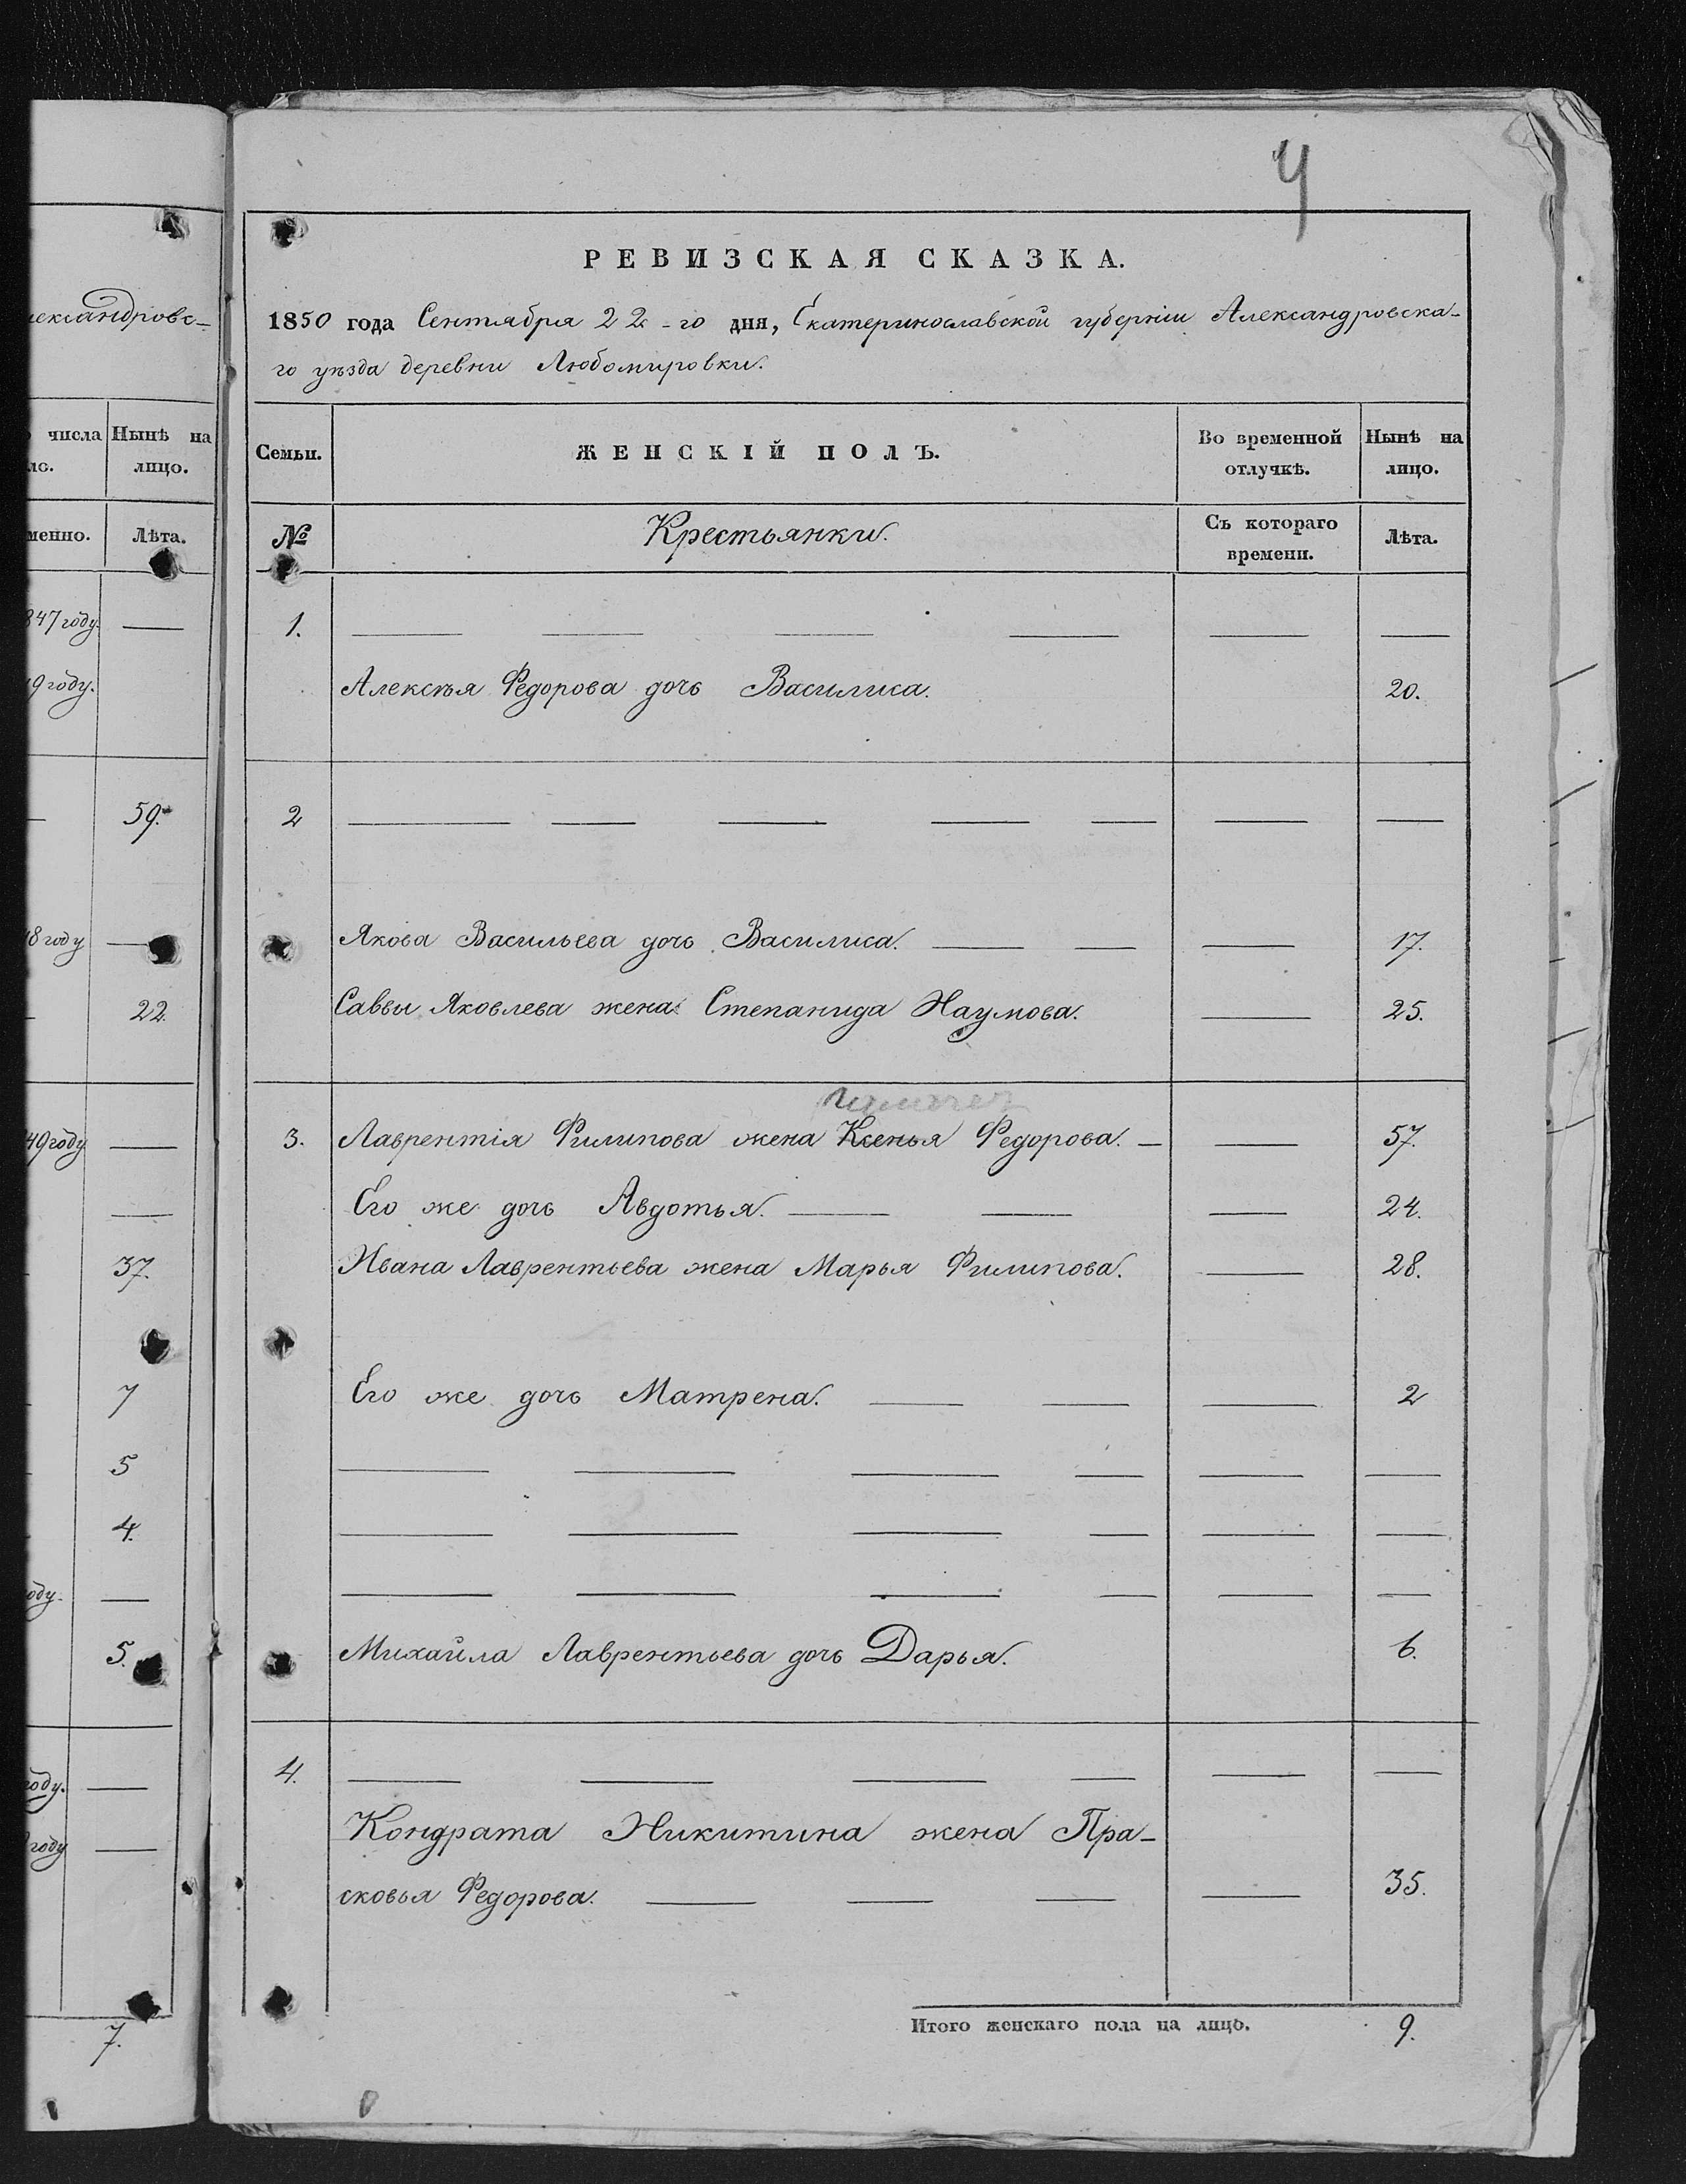 4
РЕВИЗСКАЯ СКАЗКА.
1850 года Сентября 22-го дня, Екатеринославской губерніи Александровска-
го уѣзда деревни Любомировки.
Семьи. ЖЕНСКІЙ ПОЛЪ. Во временной отлучкѣ. Нынѣ на лицо.
№ Крестьянки. Съ котораго времени. Лѣта.
1. — — — — — —
Алексѣя Федорова дочь Василиса. 20.
2 — — — — — — —
Якова Васильева дочь Василиса. — — — 17.
Саввы Яковлева жена Степанида Наумова. — 25.
3. Лаврентія Филипова жена Ксенья Федорова. — — 57.
Его же дочь Авдотья. — — — 24.
Ивана Лаврентьева жена Марья Филипова. — 28.
Его же дочь Матрена. — — — 2
— — — — — —
— — — — — —
— — — — — —
Михайла Лаврентьева дочь Дарья. 6.
4. — — — — — —
Кондрата Никитина жена Пра-
сковья Федорова. — — — — 35.
Итого женскаго пола на лицо. 9.
числа Нынѣ на
лицо.
Лѣта.
847 году. —
9 году.
— 59.
8 году —
— 22.
49 году —
—
37.
7
5
4.
оду. —
5.
году. —
году —
7.